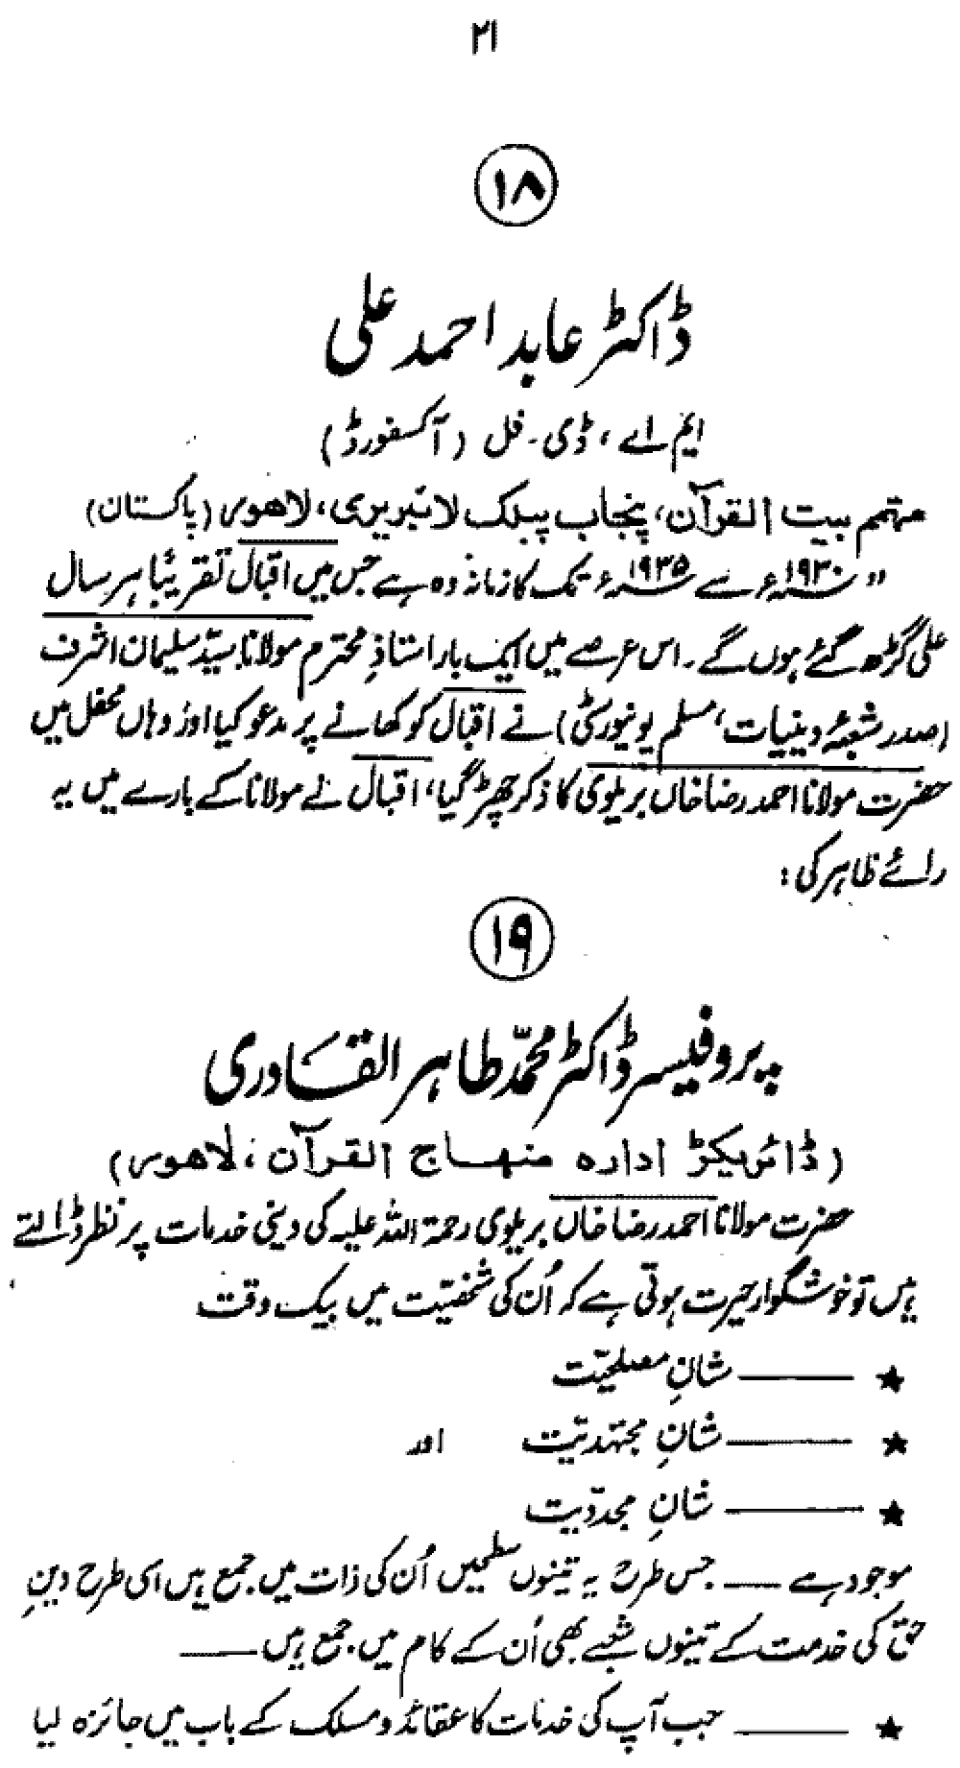 ۲۱
۱۸
ڈاکٹر عابد احمد علی
ایم اے، ڈی۔ فل (آکسفورڈ)
مہتمم بیت القرآن، پنجاب پبلک لائبریری، لاہور (پاکستان)
"۱۹۳۰ء سے ۱۹۳۵ء تک کا زمانہ وہ ہے جس میں اقبال تقریبًا ہر سال
علی گڑھ گئے ہوں گے۔ اس عرصے میں ایک بار استاذِ محترم مولانا سیّد سلیمان اشرف
(صدر شعبۂ دینیات، مسلم یونیورسٹی) نے اقبال کو کھانے پر مدعو کیا اور وہاں محفل میں
حضرت مولانا احمد رضا خاں بریلوی کا ذکر چھڑ گیا، اقبال نے مولانا کے بارے میں یہ
رائے ظاہر کی:
۱۹
پروفیسر ڈاکٹر محمّد طاہر القادری
(ڈائریکٹر ادارہ منہاج القرآن، لاہور)
حضرت مولانا احمد رضا خاں بریلوی رحمۃ اللہ علیہ کی دینی خدمات پر نظر ڈالتے
ہیں تو خوشگوار حیرت ہوتی ہے کہ اُن کی شخصیّت میں بیک وقت
★ ——— شانِ مصلحیّت
★ ——— شانِ مجتہدیّت اور
★ ——— شانِ مجددّیت
موجود ہے —— جس طرح یہ تینوں سطحیں اُن کی ذات میں جمع ہیں اسی طرح دینِ
حق کی خدمت کے تینوں شعبے بھی اُن کے کام میں جمع ہیں ——
★ ——— جب آپ کی خدمات کا عقائد و مسلک کے باب میں جائزہ لیا